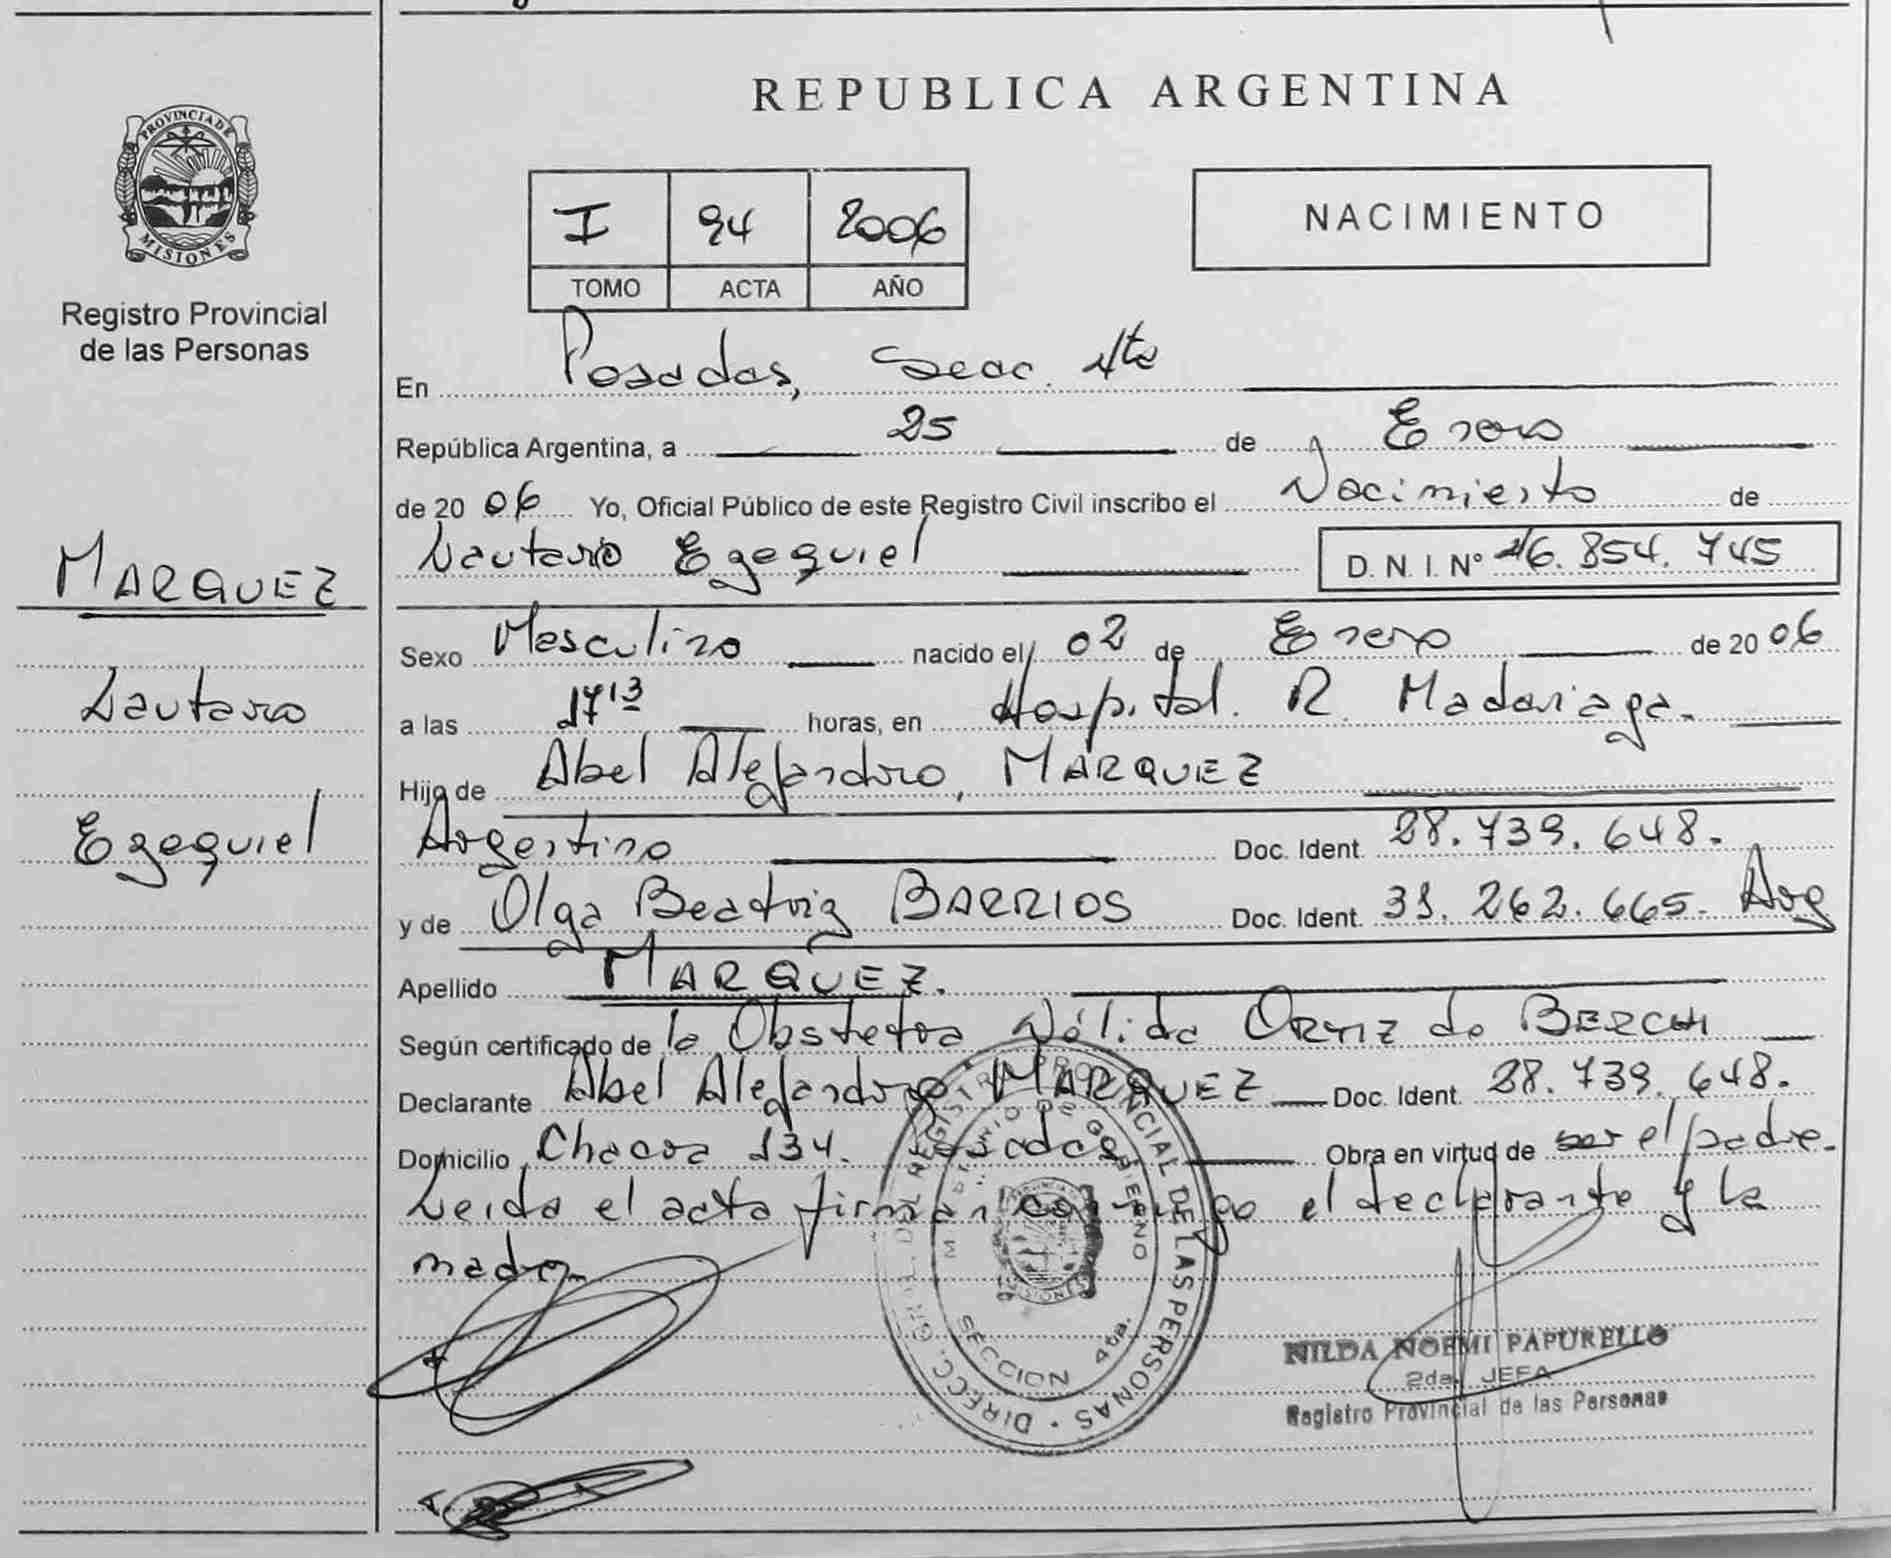 REPUBLICA ARGENTINA
PROVINCIA DE
MISIONES
Registro Provincial
de las Personas
I 94 2006
TOMO ACTA AÑO
NACIMIENTO
En Posadas, Secc. 4ta
República Argentina, a 25 de Enero
de 2006 Yo, Oficial Público de este Registro Civil inscribo el Nacimiento de
Lautaro Ezequiel D. N. I. Nº 46.854.745
MARQUEZ
Lautaro
Ezequiel
Sexo Masculino nacido el 02 de Enero de 2006
a las 17 13 horas, en Hospital. R. Madariaga.
Hijo de Abel Alejandro, MARQUEZ
Argentino Doc. Ident. 28.739.648.
y de Olga Beatriz BARRIOS Doc. Ident. 31.262.665. Arg
Apellido MARQUEZ.
Según certificado de la Obstetra Nélida ORTIZ de BERCHI
Declarante Abel Alejandro MARQUEZ Doc. Ident. 28.739.648.
Domicilio Chacra 134. Posadas Obra en virtud de ser el padre.
Leida el acta firman conmigo el declarante y la
madre.
DIRECC. GRAL. DEL REGISTRO PROVINCIAL DE LAS PERSONAS
MINISTERIO DE GOBIERNO
SECCION 4ta.
NILDA NOEMI PAPURELLO
2da. JEFA
Registro Provincial de las Personas